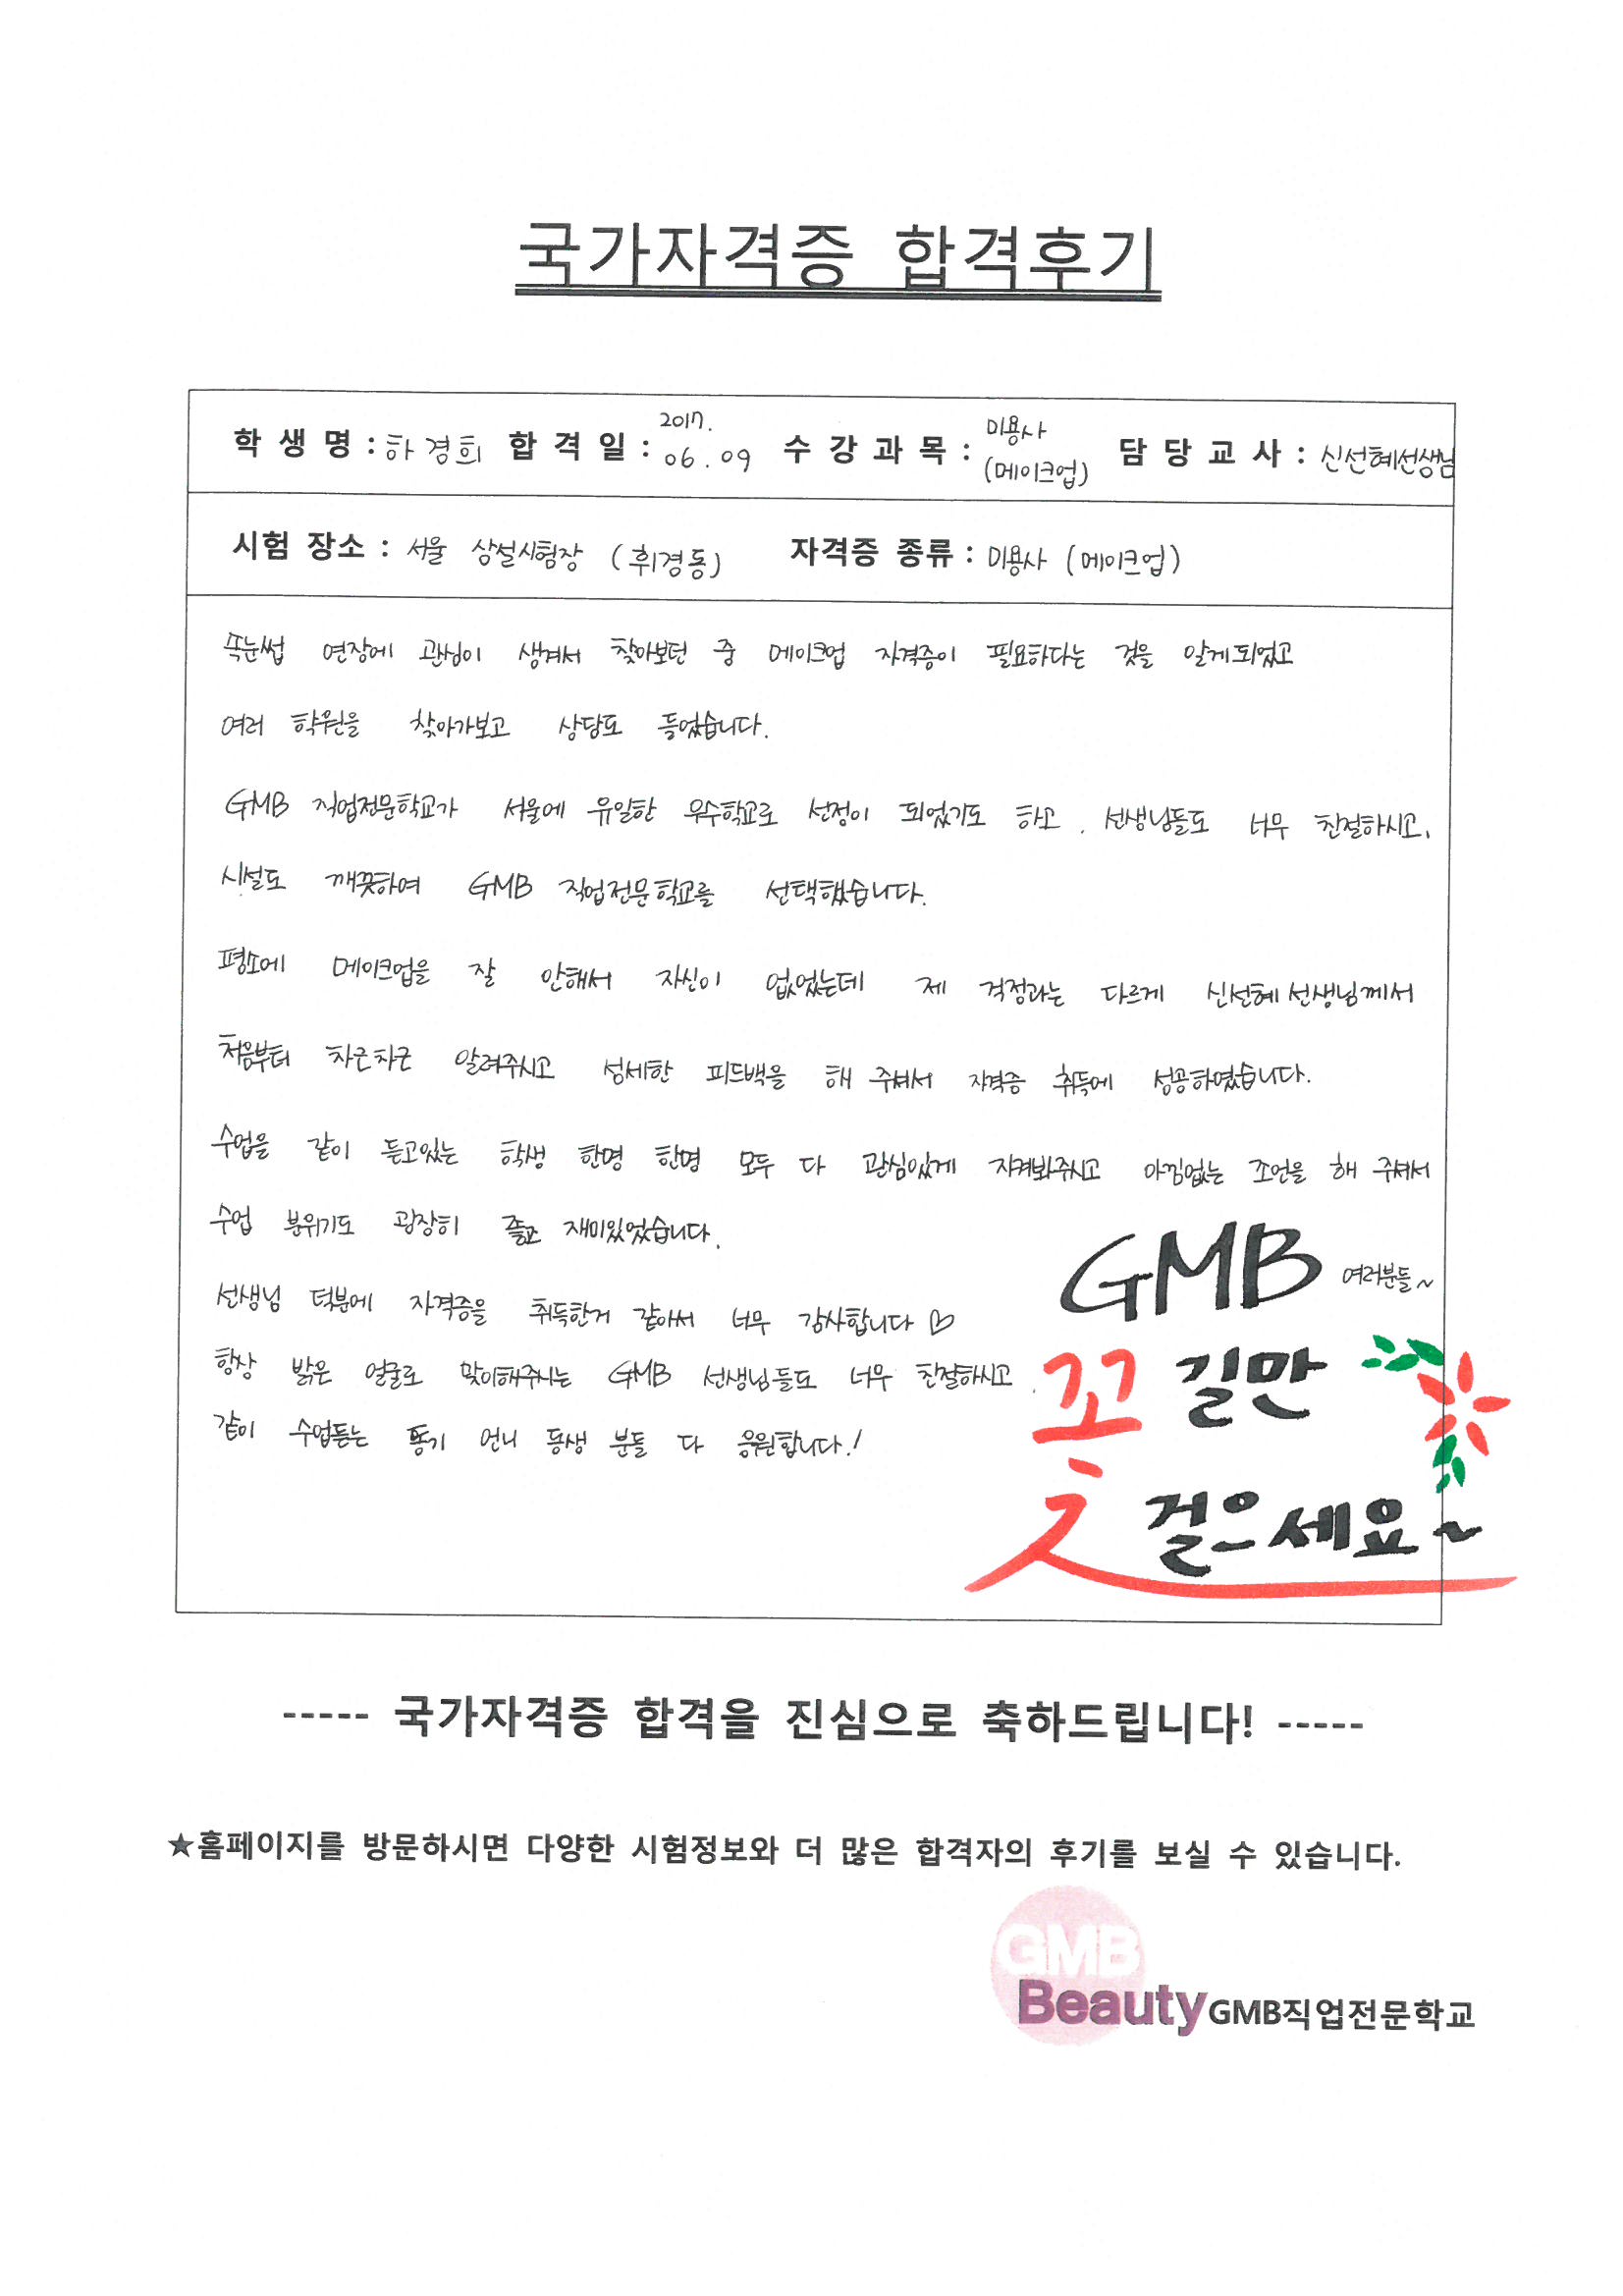 국가자격증 합격후기
학 생 명 : 하경희 합 격 일 : 2017. 06.09 수 강 과 목 : 미용사 (메이크업) 담 당 교 사 : 신선혜선생님
시험 장소 : 서울 상설시험장 (휘경동) 자격증 종류 : 미용사 (메이크업)
속눈썹 연장에 관심이 생겨서 찾아보던 중 메이크업 자격증이 필요하다는 것을 알게되었고
여러 학원을 찾아가보고 상담도 들었습니다.
GMB 직업전문학교가 서울에 유일한 우수학교로 선정이 되었기도 하고, 선생님들도 너무 친절하시고,
시설도 깨끗하여 GMB 직업전문학교를 선택했습니다.
평소에 메이크업을 잘 안해서 자신이 없었는데 제 걱정과는 다르게 신선혜선생님께서
처음부터 차근차근 알려주시고 섬세한 피드백을 해 주셔서 자격증 취득에 성공하였습니다.
수업을 같이 듣고있는 학생 한명 한명 모두 다 관심있게 지켜봐주시고 아낌없는 조언을 해 주셔서
수업 분위기도 굉장히 좋고 재미있었습니다.
선생님 덕분에 자격증을 취득한거 같아서 너무 감사합니다♡
항상 밝은 얼굴로 맞이해주시는 GMB 선생님들도 너무 친절하시고
같이 수업듣는 동기 언니 동생 분들 다 응원합니다!
GMB 여러분들~
꽃길만
걸으세요~
----- 국가자격증 합격을 진심으로 축하드립니다! -----
★홈페이지를 방문하시면 다양한 시험정보와 더 많은 합격자의 후기를 보실 수 있습니다.
GMB
Beauty GMB직업전문학교